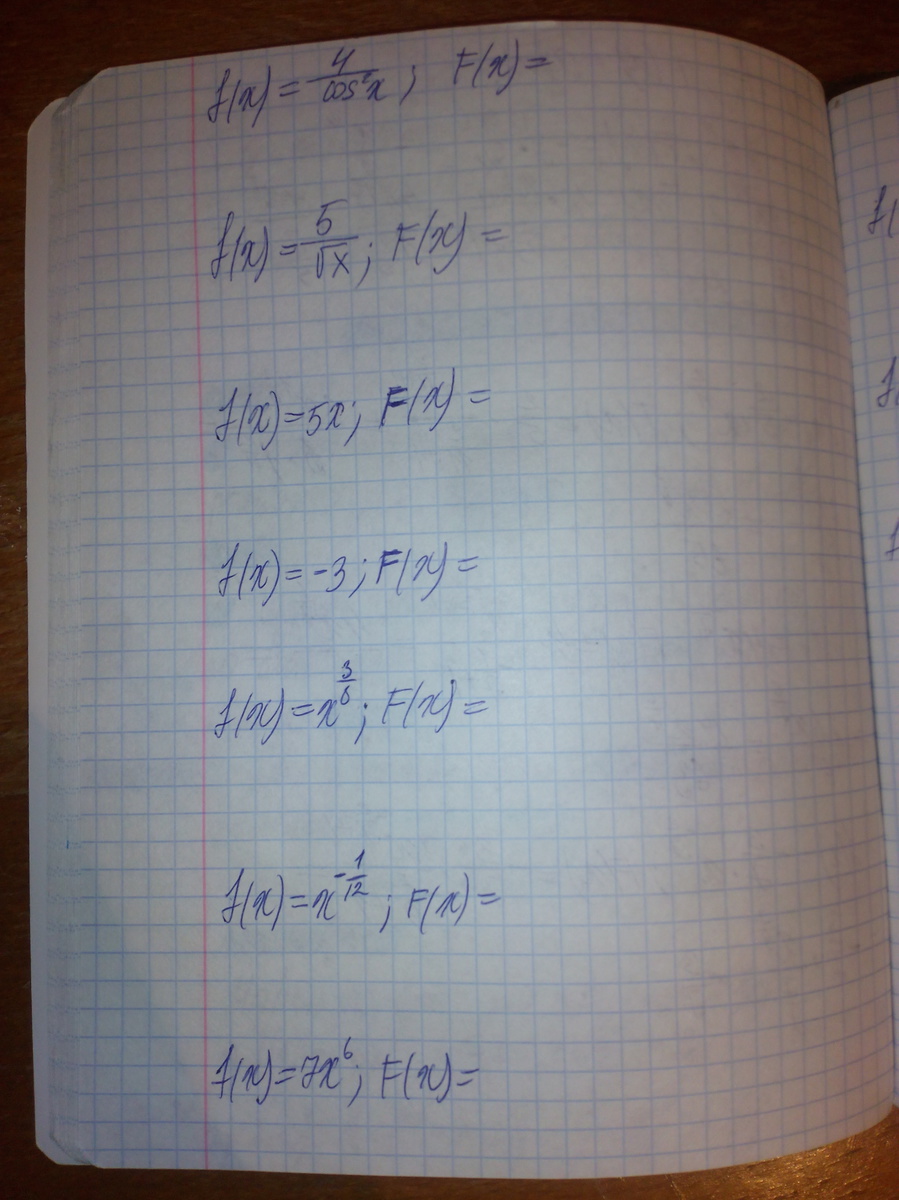 f(x) = 4/cos²x ; F(x) =
f(x) = 5/√x ; F(x) =
f(x) = 5x ; F(x) =
f(x) = -3 ; F(x) =
f(x) = x^(3/5) ; F(x) =
f(x) = x^(-1/12) ; F(x) =
f(x) = 7x⁶ ; F(x) =